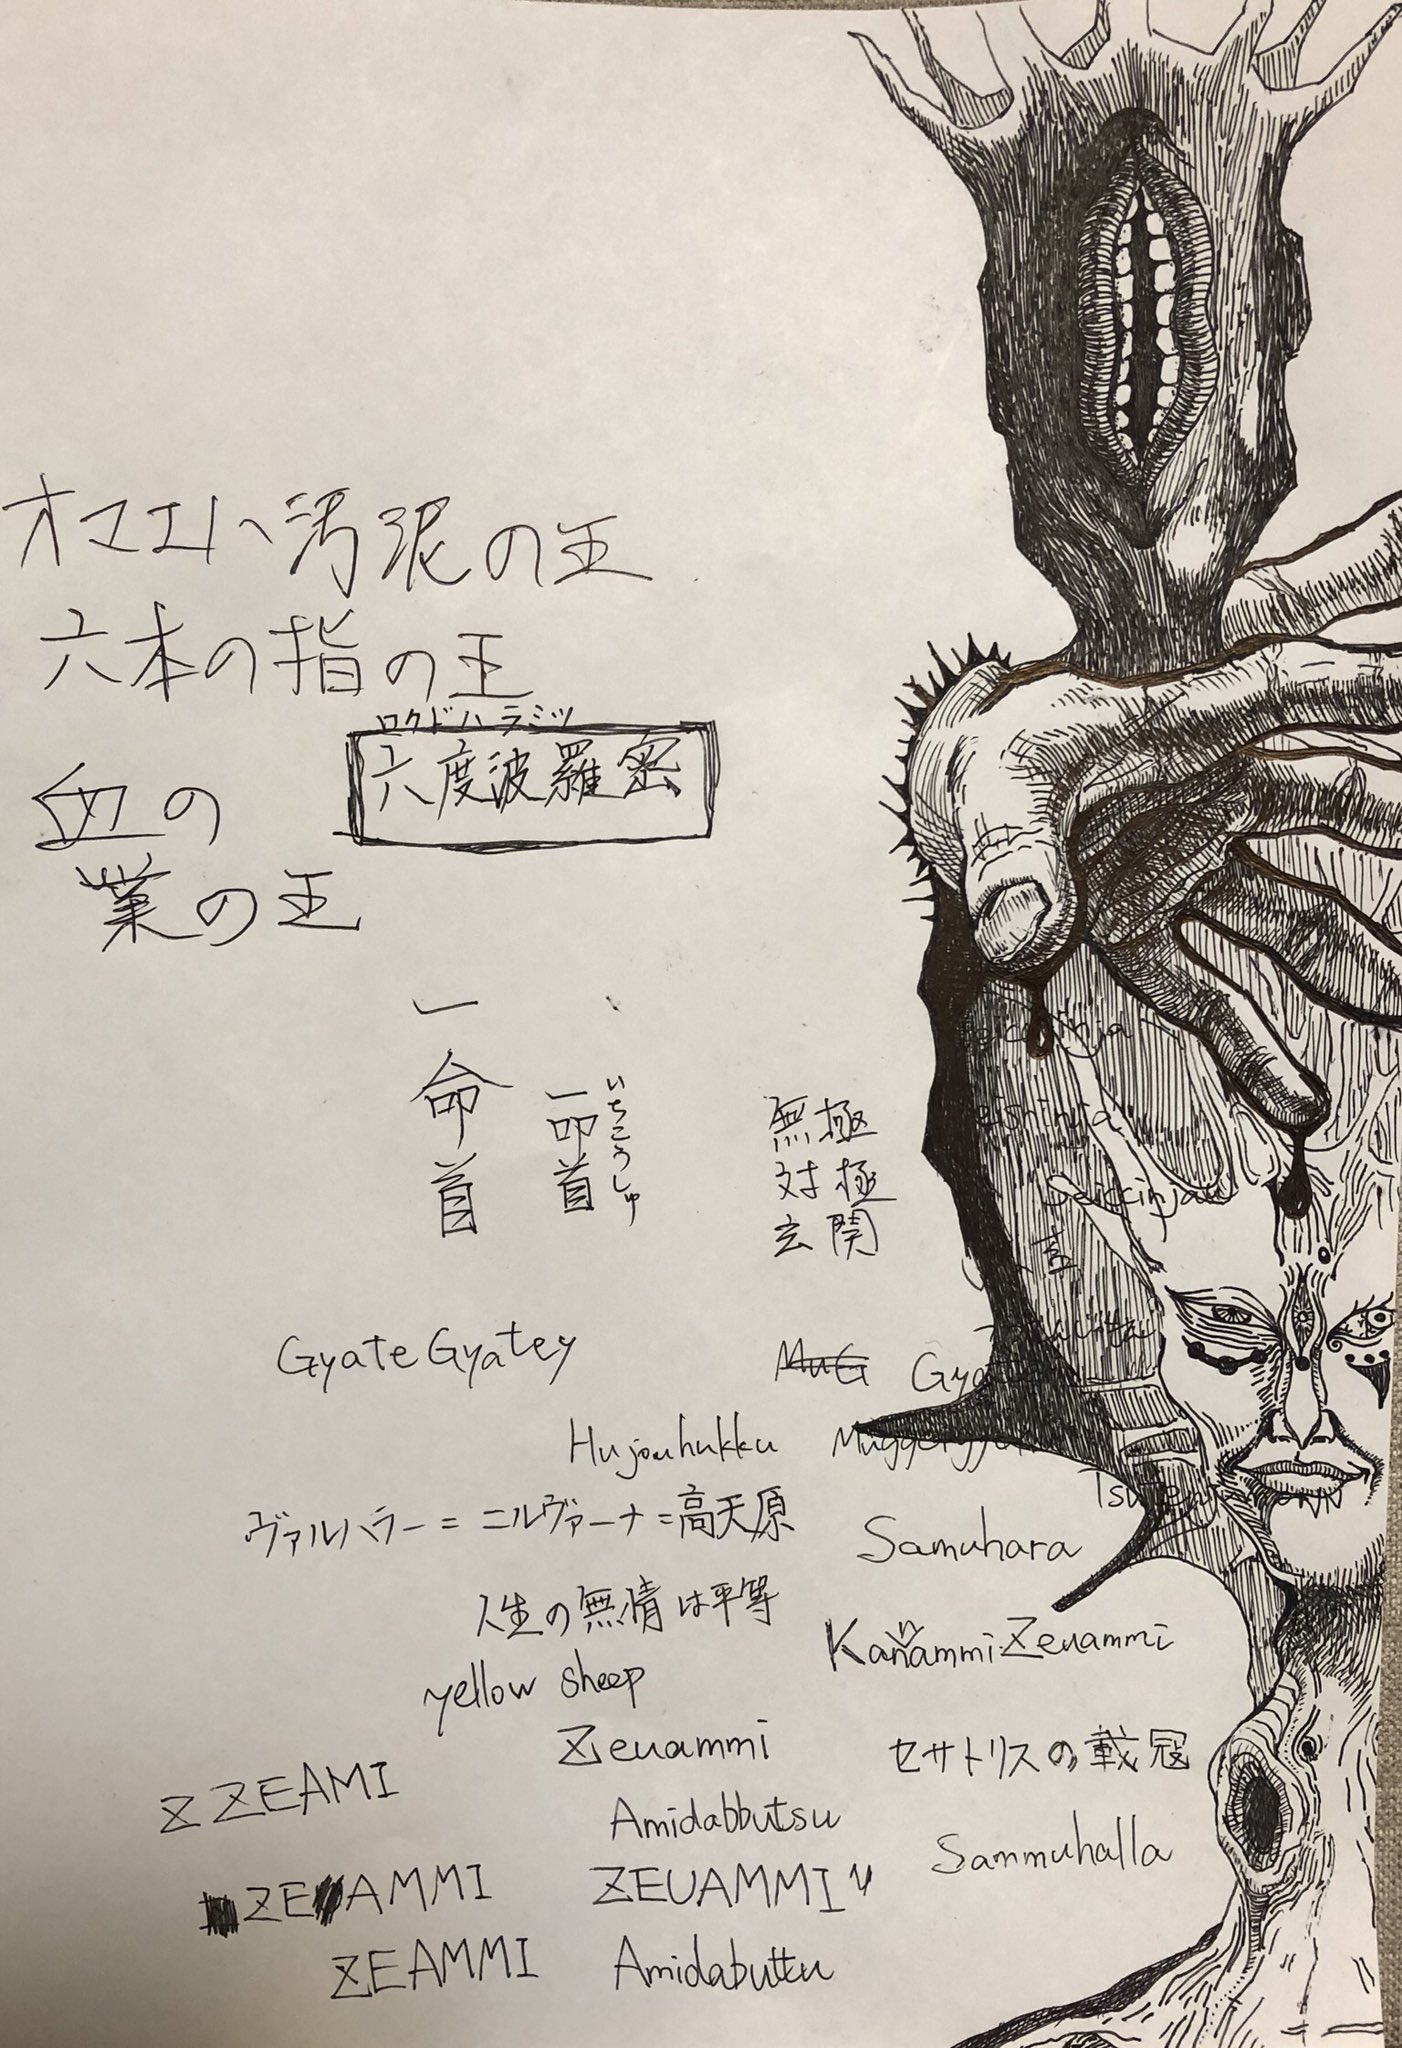 オマエハ汚泥の王
六本の指の王
ロクドハラミツ
六度波羅密
血の
業の王
一命首
一命首
いちこうしゅ
無極
対極
玄関
Gyate Gyatey
MuG Gyate
Hujouhukku
ヴァルハラー=ニルヴァーナ=高天原
Samuhara
人生の無情は平等
Kanammi Zeuammi
yellow sheep
Zeuammi
セサトリスの載冠
ZZEAMI
Amidabbutsu
Sammuhalla
ZEAMMI
ZEUAMMI
ZEAMMI
Amidabuttu